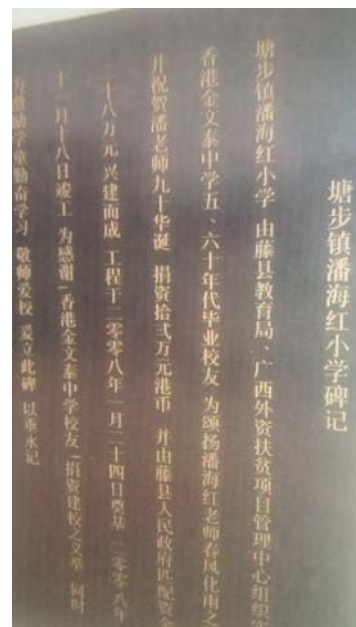 塘步镇潘海红小学碑记
塘步镇潘海红小学由藤县教育局、广西外资扶贫项目管理中心组织实
香港金文泰中学五、六十年代毕业校友为颂扬潘海红老师春风化雨之
并祝贺潘老师九十华诞捐资拾弍万元港币并由藤县人民政府匹配资金
二十八万元兴建而成工程于二零零八年一月二十四日奠基二零零八年
十一月十八日竣工为感谢“香港金文泰中学校友”捐资建校之义举同时
为激励学童勤奋学习敬师爱校爰立此碑以垂永记